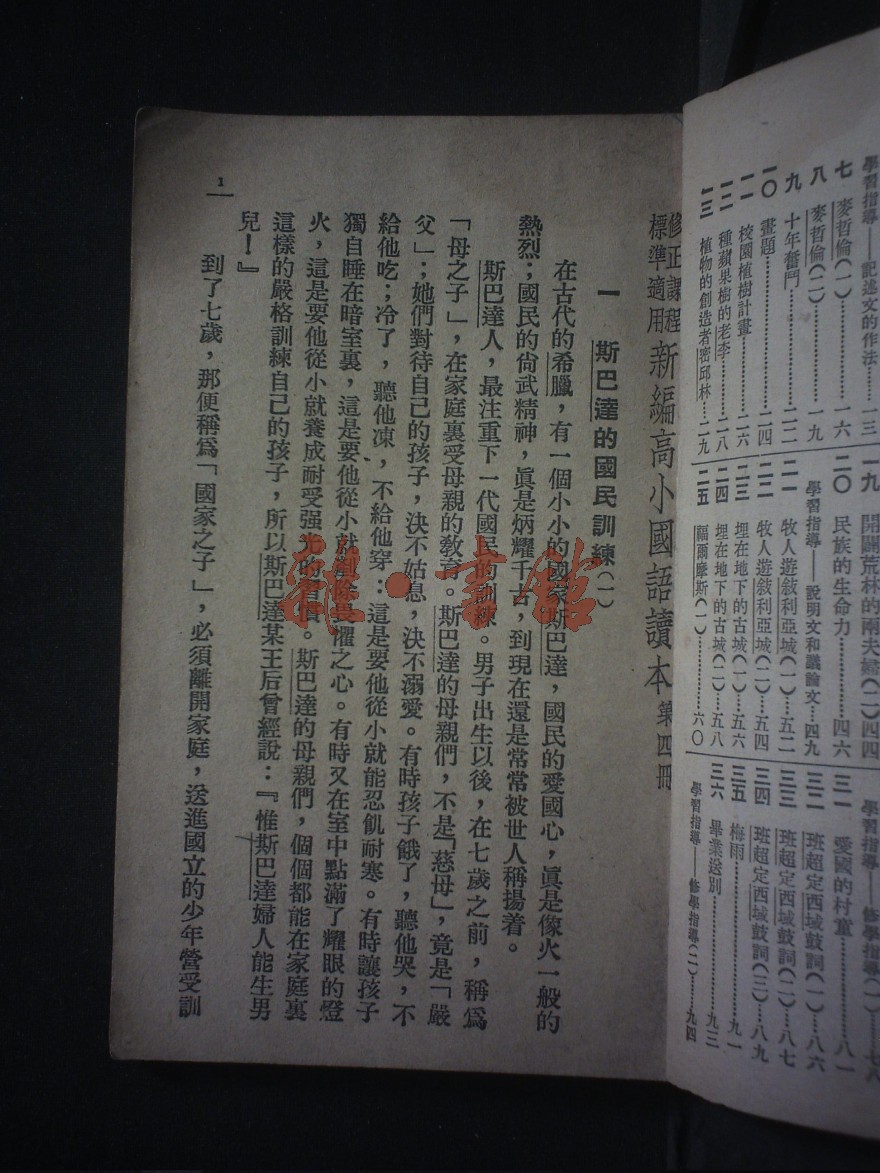 學習指導——記述文的作法……一三
七 麥哲倫(一)……一六
八 麥哲倫(二)……一九
九 十年奮鬥……二二
一〇 畫題……二四
一一 校園植樹計畫……二六
一二 種蘋果樹的老李……二八
一三 植物的創造者密邱林…二九
一九 開闢荒林的兩夫婦(二)四四
二〇 民族的生命力……四六
學習指導——說明文和議論文…四九
二一 牧人遊敍利亞城(一)…五二
二二 牧人遊敍利亞城(二)…五四
二三 埋在地下的古城(一)…五六
二四 埋在地下的古城(二)…五八
二五 福爾摩斯(一)……六〇
學習指導——修學指導(一)…七八
三一 愛國的村童……八一
三二 班超定西域鼓詞(一)…八六
三三 班超定西域鼓詞(二)…八七
三四 班超定西域鼓詞(三)…八九
三五 梅雨……九一
三六 畢業送別……九三
學習指導——修學指導(二)…九四
修正課程
標準適用 新編高小國語讀本 第四冊
一 斯巴達的國民訓練(一)
在古代的希臘,有一個小小的國家斯巴達,國民的愛國心,眞是像火一般的
熱烈;國民的尙武精神,眞是炳耀千古,到現在還是常常被世人稱揚着。
斯巴達人,最注重下一代國民的訓練。男子出生以後,在七歲之前,稱爲
「母之子」,在家庭裏受母親的敎育。斯巴達的母親們,不是「慈母」,竟是「嚴
父」;她們對待自己的孩子,決不姑息,決不溺愛。有時孩子餓了,聽他哭,不
給他吃;冷了,聽他凍,不給他穿:這是要他從小就能忍飢耐寒。有時讓孩子
獨自睡在暗室裏,這是要他從小就剷除畏懼之心。有時又在室中點滿了耀眼的燈
火,這是要他從小就養成耐受强光的習慣。斯巴達的母親們,個個都能在家庭裏
這樣的嚴格訓練自己的孩子,所以斯巴達某王后曾經說:『惟斯巴達婦人能生男
兒!』
到了七歲,那便稱爲「國家之子」,必須離開家庭,送進國立的少年營受訓
1
雜·書館